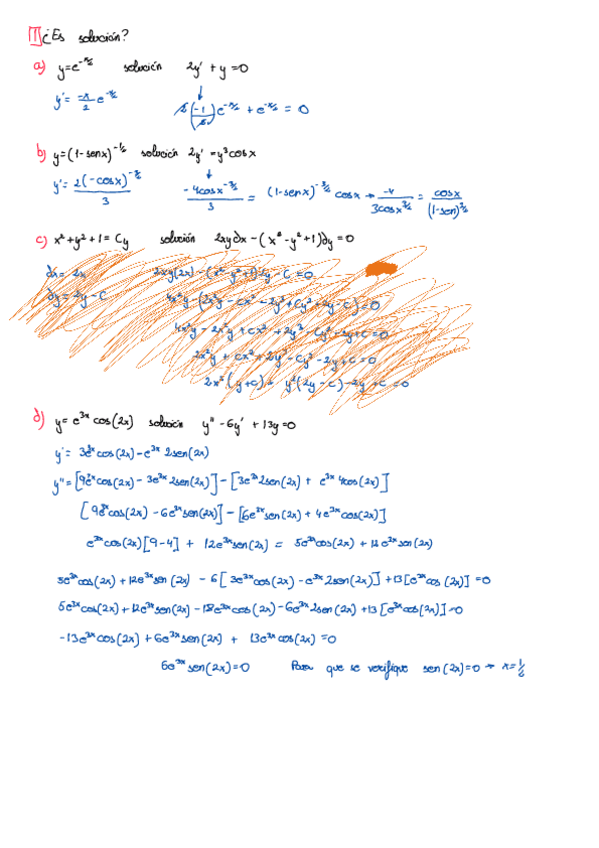 1 ¿Es solución?
a) y=e^{-x/2} solución 2y' + y =0
y'= \frac{-x}{2} e^{-x/2} 2(\frac{-1}{2})e^{-x/2} + e^{-x/2} = 0
b) y=(1-senx)^{-1/2} solución 2y' =y^3cosx
y'= \frac{2(-cosx)^{-3/2}}{3} \frac{-4cosx^{-3/2}}{3} = (1-senx)^{-3/2} cosx → \frac{-4}{3cosx^{3/2}} = \frac{cosx}{(1-sen)^{3/2}}
c) x^2+y^2+1= Cy solución 2xydx-(x^2-y^2+1)dy=0
dx= 2x 2xy(2x) -(x^2-y^2+1)2y - C =0
dy= 2y-C 4x^2y -(2x^2y - cx^2 -2y^3+Cy^2+2y-c)=0
4x^2y - 2x^2y + cx^2 + 2y^3 - Cy^2 -2y+c=0
2x^2y + cx^2 + 2y^3 - cy^2 - 2y+c=0
2x^2(y+c)+ y^2(2y-c)-2y+c =0
d) y= e^{3x}cos(2x) solución y'' -6y' + 13y=0
y'= 3e^{3x}cos(2x)-e^{3x}2sen(2x)
y''=[9e^{3x}cos(2x)-3e^{3x}2sen(2x)]-[3e^{3x}2sen(2x)+ e^{3x}4cos(2x)]
[9e^{3x}cos(2x) -6e^{3x}sen(2x)]-[6e^{3x}sen(2x)+4e^{3x}cos(2x)]
e^{3x}cos(2x)[9-4] + 12e^{3x}sen(2x) = 5e^{3x}cos(2x)+12e^{3x}sen(2x)
5e^{3x}cos(2x)+12e^{3x}sen(2x) - 6[3e^{3x}cos(2x)-e^{3x}2sen(2x)]+13[e^{3x}cos(2x)]=0
5e^{3x}cos(2x)+12e^{3x}sen(2x)-18e^{3x}cos(2x)-6e^{3x}2sen(2x)+13[e^{3x}cos(2x)]=0
-13e^{3x}cos(2x)+6e^{3x}sen(2x) + 13e^{3x}cos(2x) =0
6e^{3x}sen(2x)=0 Para que se verifique sen(2x)=0 → x=\frac{1}{6}